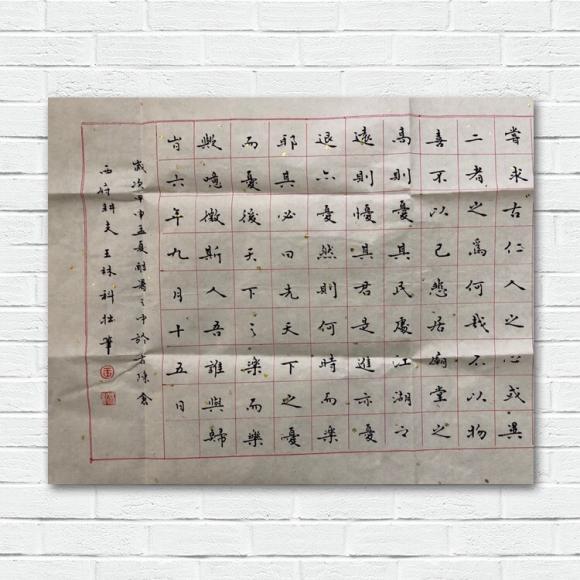 嘗求古仁人之心或異
二者之爲何哉不以物
喜不以己悲居廟堂之
高則憂其民處江湖之
遠則憂其君是進亦憂
退亦憂然則何時而樂
耶其必曰先天下之憂
而憂後天下之樂而樂
歟噫微斯人吾誰與歸
旹六年九月十五日
歲次甲申孟夏酷暑之中於古陳倉
西府耕夫王林科拙筆